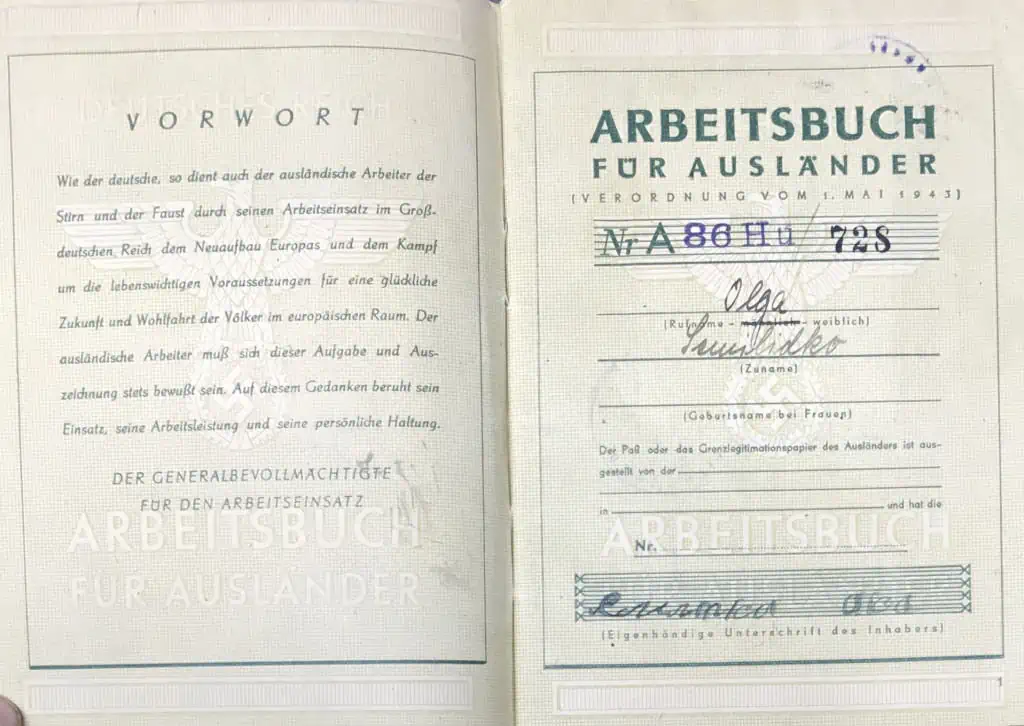 VORWORT
Wie der deutsche, so dient auch der ausländische Arbeiter der
Stirn und der Faust durch seinen Arbeitseinsatz im Groß-
deutschen Reich dem Neuaufbau Europas und dem Kampf
um die lebenswichtigen Voraussetzungen für eine glückliche
Zukunft und Wohlfahrt der Völker im europäischen Raum. Der
ausländische Arbeiter muß sich dieser Aufgabe und Aus-
zeichnung stets bewußt sein. Auf diesem Gedanken beruht sein
Einsatz, seine Arbeitsleistung und seine persönliche Haltung.
DER GENERALBEVOLLMÄCHTIGTE
FÜR DEN ARBEITSEINSATZ
DEUTSCHES REICH
ARBEITSBUCH
FÜR AUSLÄNDER
ARBEITSBUCH
FÜR AUSLÄNDER
(VERORDNUNG VOM 1. MAI 1943)
Nr A 86 Hu / 728
Olga
(Rufname - männlich - weiblich)
(Zuname)
(Geburtsname bei Frauen)
Der Paß oder das Grenzlegitimationspapier des Ausländers ist aus-
gestellt von der
in und hat die
Nr.
ARBEITSBUCH
(Eigenhändige Unterschrift des Inhabers)
1